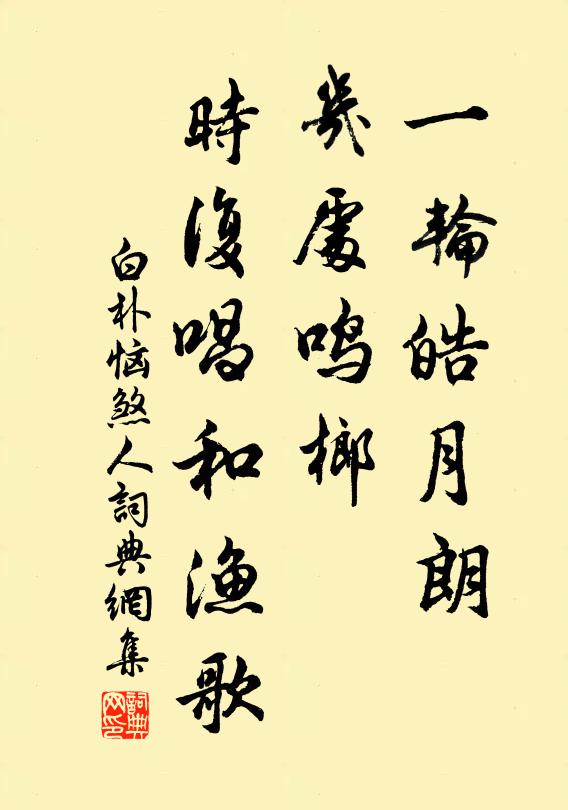 一輪皓月朗
幾處鸣榔
時復唱和漁歌
白朴惱煞人詞典網集
詞典网印